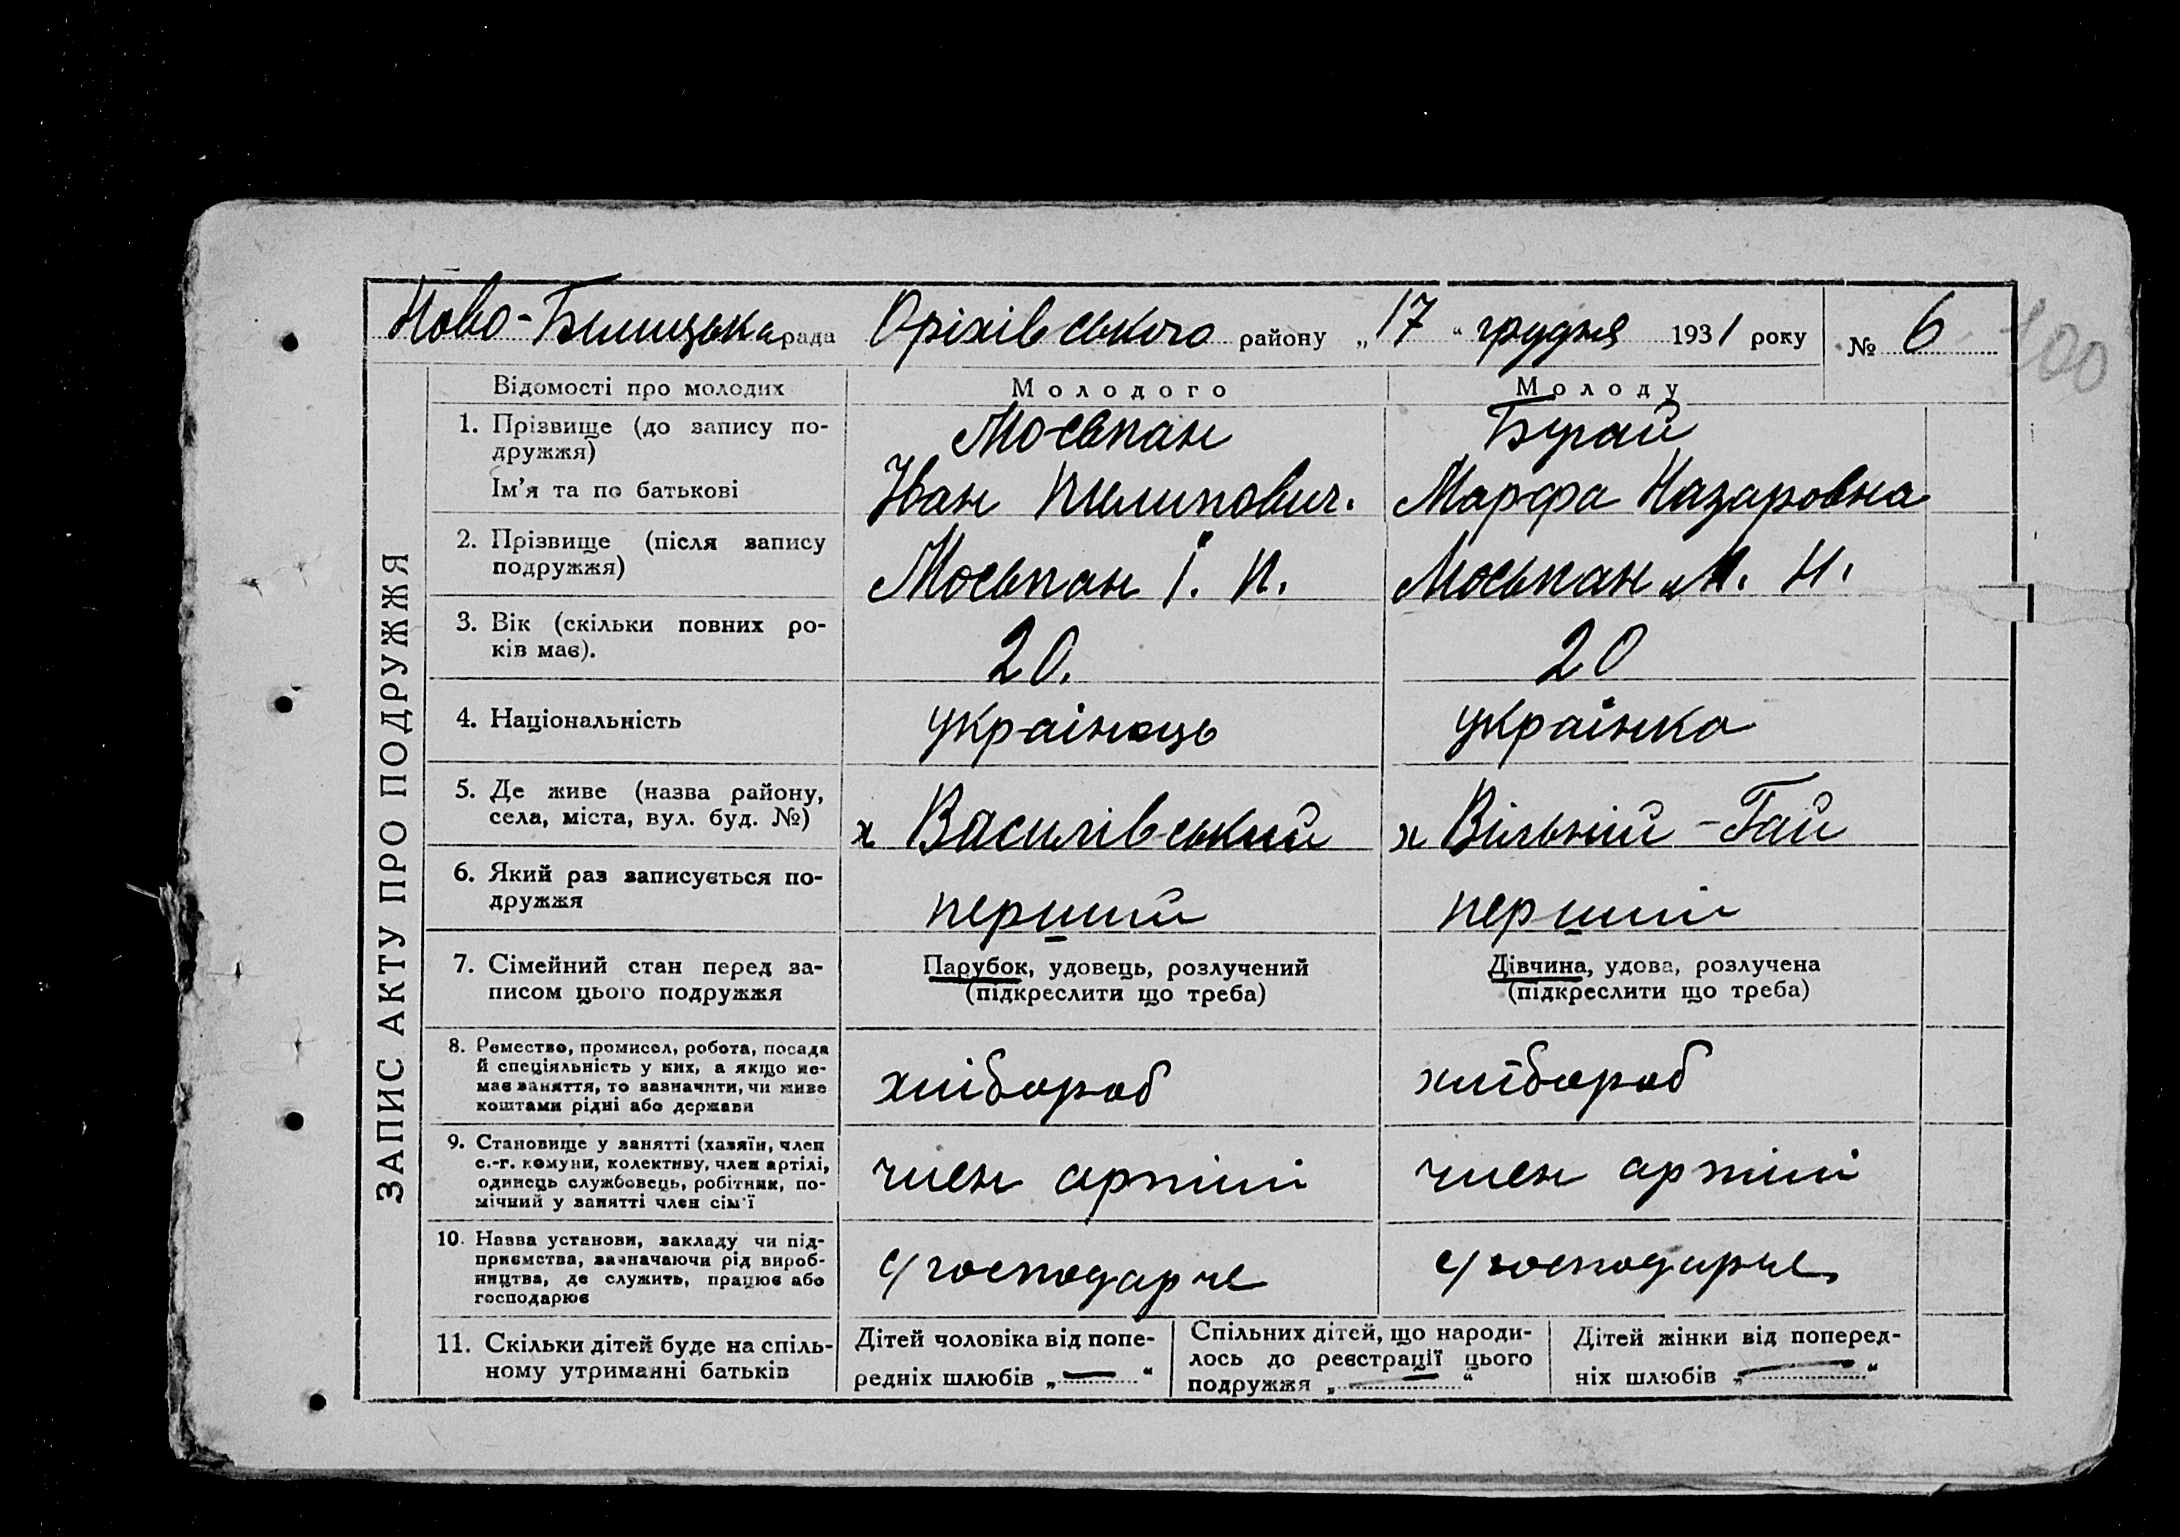 Ново-Билицька рада Оріхівського району „17“ грудня 1931 року № 6
100
ЗАПИС АКТУ ПРО ПОДРУЖЖЯ
Відомості про молодих Молодого Молоду
1. Прізвище (до запису по-
дружжя)
Мосьпан Бурай
Ім'я та по батькові Іван Пилипович. Марфа Назаровна
2. Прізвище (після запису
подружжя)
Мосьпан І. П. Мосьпан М. Н.
3. Вік (скільки повних ро-
ків має).
20. 20
4. Національність українець українка
5. Де живе (назва району,
села, міста, вул. буд. №)
х Василівський х Вільній-Гай
6. Який раз записується по-
дружжя
перший перший
7. Сімейний стан перед за-
писом цього подружжя
Парубок, удовець, розлучений
(підкреслити що треба)
Дівчина, удова, розлучена
(підкреслити що треба)
8. Ремество, промисел, робота, посада
й спеціяльність у них, а якщо не-
має заняття, то зазначити, чи живе
коштами рідні або держави
хлібороб хлібороб
9. Становище у занятті (хазяїн, член
с.-г. комуни, колективу, член артілі,
одинець службовець, робітник, по-
мічний у занятті член сім'ї
член артілі член артілі
10. Назва установи, закладу чи під-
приємства, зазначаючи рід вироб-
ництва, де служить, працює або
господарює
с/господарче с/господарче
11. Скільки дітей буде на спіль-
ному утриманні батьків
Дітей чоловіка від попе-
редніх шлюбів „—“
Спільних дітей, що народи-
лось до реєстрації цього
подружжя „—“
Дітей жінки від поперед-
ніх шлюбів „—“